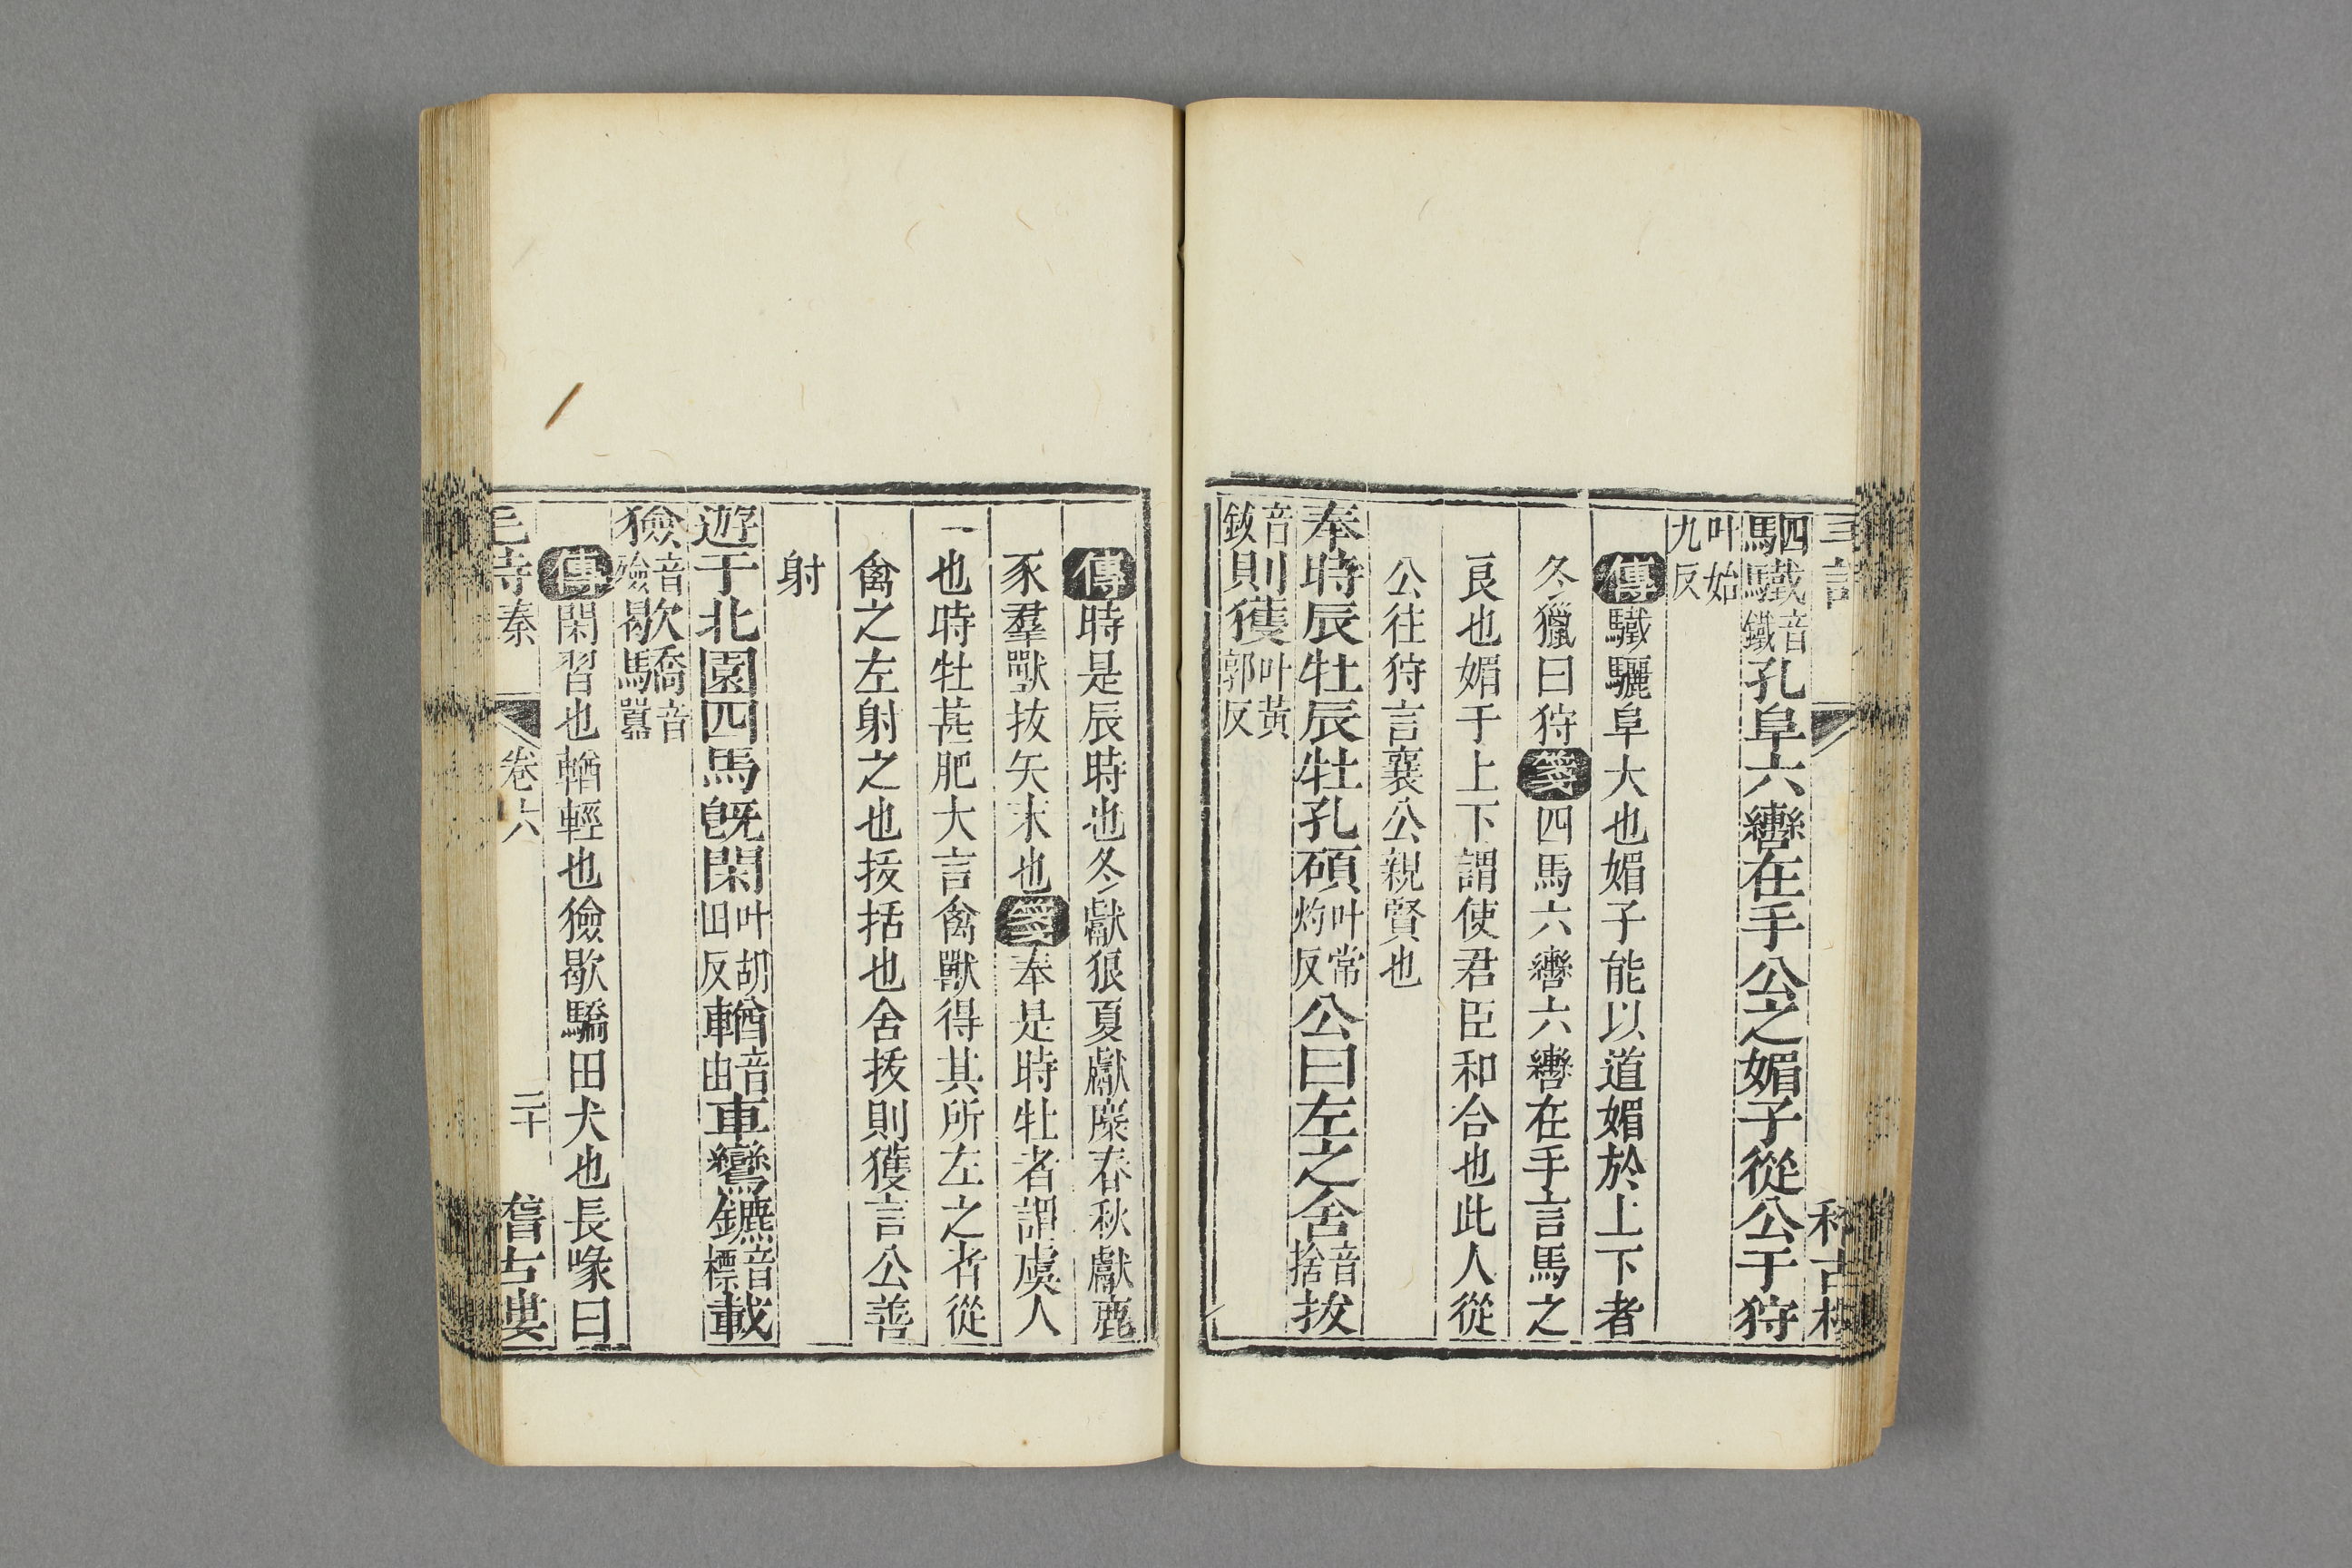 駟四驖音鐵孔阜六轡在手公之媚子從公于狩
叶始九反
傳驖驪阜大也媚子能以道媚於上下者
冬獵曰狩箋四馬六轡六轡在手言馬之
良也媚于上下謂使君臣和合也此人從
公往狩言襄公親賢也
奉時辰牡辰牡孔碩叶常灼反公曰左之舍音捨拔
音鈸則獲叶黃郭反
傳時是辰時也冬獻狼夏獻麋春秋獻鹿
豕羣獸拔矢末也箋奉是時牡者謂虞人
一也時牡甚肥大言禽獸得其所左之者從
禽之左射之也拔括也舍拔則獲言公善
射
遊于北園四馬旣閑叶胡田反輶音由車鸞鑣音標載
獫音殮歇驕音囂
傳閑習也輶輕也獫歇驕田犬也長喙曰
毛詩秦 卷六 二十 稽古樓